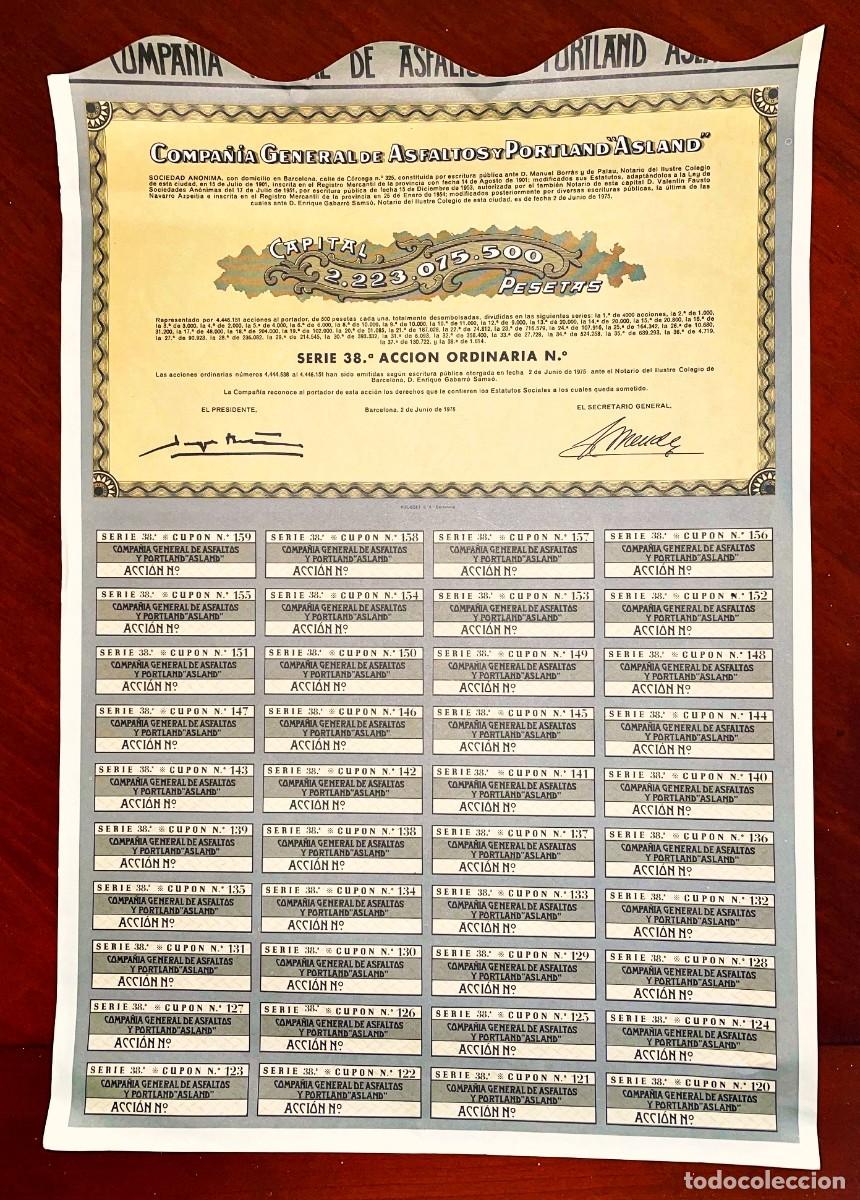 COMPAÑIA DE PORTLAND
COMPAÑIA GENERAL DE ASFALTOS Y PORTLAND "ASLAND"
SOCIEDAD ANONIMA, con domicilio en Barcelona, calle de Córcega n.º 325, constituida por escritura pública ante D. Manuel Borrás y de Palau, Notario del Ilustre Colegio
de esta ciudad, en 15 de Julio de 1901, inscrita en el Registro Mercantil de la provincia con fecha 14 de Agosto de 1901; modificados sus Estatutos, adaptándolos a la Ley de
Sociedades Anónimas del 17 de Julio de 1951, por escritura pública de fecha 15 de Diciembre de 1953, autorizada por el también Notario de esta capital D. Valentín Fausto
Navarro Azpeitia e inscrita en el Registro Mercantil de esta provincia en 25 de Enero de 1954; modificados posteriormente por diversas escrituras públicas, la última de las
cuales ante D. Enrique Gabarró Samsó, Notario del Ilustre Colegio de esta ciudad, es de fecha 2 de Junio de 1975.
CAPITAL
2.223.075.500
PESETAS
Representado por 4.446.151 acciones al portador, de 500 pesetas cada una, totalmente desembolsadas, divididas en las siguientes series: la 1.ª de 4000 acciones, la 2.ª de 1.000,
la 3.ª de 3.000, la 4.ª de 2.000, la 5.ª de 4.000, la 6.ª de 6.000, la 8.ª de 10.000, la 9.ª de 10.000, la 10.ª de 11.000, la 11.ª de 9.000, la 12.ª de 9.000, la 13.ª de 20.000, la 14.ª de 20.000, la 15.ª de 20.800, la 16.ª de
SERIE 38.ª ACCION ORDINARIA N.º
Las acciones ordinarias números 4.444.538 al 4.446.151 han sido emitidas según escritura pública otorgada en fecha 2 de Junio de 1975 ante el Notario del Ilustre Colegio de
Barcelona, D. Enrique Gabarró Samsó.
La Compañía reconoce al portador de esta acción los derechos que le confieren los Estatutos Sociales a los cuales queda sometido.
EL PRESIDENTE, Barcelona, 2 de Junio de 1975 EL SECRETARIO GENERAL,
SERIE 38.ª ※ CUPON N.º 159 SERIE 38.ª ※ CUPON N.º 158 SERIE 38.ª ※ CUPON N.º 157 SERIE 38.ª ※ CUPON N.º 156
COMPAÑIA GENERAL DE ASFALTOS COMPAÑIA GENERAL DE ASFALTOS COMPAÑIA GENERAL DE ASFALTOS COMPAÑIA GENERAL DE ASFALTOS
Y PORTLAND "ASLAND" Y PORTLAND "ASLAND" Y PORTLAND "ASLAND" Y PORTLAND "ASLAND"
ACCIÓN Nº ACCIÓN Nº ACCIÓN Nº ACCIÓN Nº
SERIE 38.ª ※ CUPON N.º 155 SERIE 38.ª ※ CUPON N.º 154 SERIE 38.ª ※ CUPON N.º 153 SERIE 38.ª ※ CUPON N.º 152
COMPAÑIA GENERAL DE ASFALTOS COMPAÑIA GENERAL DE ASFALTOS COMPAÑIA GENERAL DE ASFALTOS COMPAÑIA GENERAL DE ASFALTOS
Y PORTLAND "ASLAND" Y PORTLAND "ASLAND" Y PORTLAND "ASLAND" Y PORTLAND "ASLAND"
ACCIÓN Nº ACCIÓN Nº ACCIÓN Nº ACCIÓN Nº
SERIE 38.ª ※ CUPON N.º 151 SERIE 38.ª ※ CUPON N.º 150 SERIE 38.ª ※ CUPON N.º 149 SERIE 38.ª ※ CUPON N.º 148
COMPAÑIA GENERAL DE ASFALTOS COMPAÑIA GENERAL DE ASFALTOS COMPAÑIA GENERAL DE ASFALTOS COMPAÑIA GENERAL DE ASFALTOS
Y PORTLAND "ASLAND" Y PORTLAND "ASLAND" Y PORTLAND "ASLAND" Y PORTLAND "ASLAND"
ACCIÓN Nº ACCIÓN Nº ACCIÓN Nº ACCIÓN Nº
SERIE 38.ª ※ CUPON N.º 147 SERIE 38.ª ※ CUPON N.º 146 SERIE 38.ª ※ CUPON N.º 145 SERIE 38.ª ※ CUPON N.º 144
COMPAÑIA GENERAL DE ASFALTOS COMPAÑIA GENERAL DE ASFALTOS COMPAÑIA GENERAL DE ASFALTOS COMPAÑIA GENERAL DE ASFALTOS
Y PORTLAND "ASLAND" Y PORTLAND "ASLAND" Y PORTLAND "ASLAND" Y PORTLAND "ASLAND"
ACCIÓN Nº ACCIÓN Nº ACCIÓN Nº ACCIÓN Nº
SERIE 38.ª ※ CUPON N.º 143 SERIE 38.ª ※ CUPON N.º 142 SERIE 38.ª ※ CUPON N.º 141 SERIE 38.ª ※ CUPON N.º 140
COMPAÑIA GENERAL DE ASFALTOS COMPAÑIA GENERAL DE ASFALTOS COMPAÑIA GENERAL DE ASFALTOS COMPAÑIA GENERAL DE ASFALTOS
Y PORTLAND "ASLAND" Y PORTLAND "ASLAND" Y PORTLAND "ASLAND" Y PORTLAND "ASLAND"
ACCIÓN Nº ACCIÓN Nº ACCIÓN Nº ACCIÓN Nº
SERIE 38.ª ※ CUPON N.º 139 SERIE 38.ª ※ CUPON N.º 138 SERIE 38.ª ※ CUPON N.º 137 SERIE 38.ª ※ CUPON N.º 136
COMPAÑIA GENERAL DE ASFALTOS COMPAÑIA GENERAL DE ASFALTOS COMPAÑIA GENERAL DE ASFALTOS COMPAÑIA GENERAL DE ASFALTOS
Y PORTLAND "ASLAND" Y PORTLAND "ASLAND" Y PORTLAND "ASLAND" Y PORTLAND "ASLAND"
ACCIÓN Nº ACCIÓN Nº ACCIÓN Nº ACCIÓN Nº
SERIE 38.ª ※ CUPON N.º 135 SERIE 38.ª ※ CUPON N.º 134 SERIE 38.ª ※ CUPON N.º 133 SERIE 38.ª ※ CUPON N.º 132
COMPAÑIA GENERAL DE ASFALTOS COMPAÑIA GENERAL DE ASFALTOS COMPAÑIA GENERAL DE ASFALTOS COMPAÑIA GENERAL DE ASFALTOS
Y PORTLAND "ASLAND" Y PORTLAND "ASLAND" Y PORTLAND "ASLAND" Y PORTLAND "ASLAND"
ACCIÓN Nº ACCIÓN Nº ACCIÓN Nº ACCIÓN Nº
SERIE 38.ª ※ CUPON N.º 131 SERIE 38.ª ※ CUPON N.º 130 SERIE 38.ª ※ CUPON N.º 129 SERIE 38.ª ※ CUPON N.º 128
COMPAÑIA GENERAL DE ASFALTOS COMPAÑIA GENERAL DE ASFALTOS COMPAÑIA GENERAL DE ASFALTOS COMPAÑIA GENERAL DE ASFALTOS
Y PORTLAND "ASLAND" Y PORTLAND "ASLAND" Y PORTLAND "ASLAND" Y PORTLAND "ASLAND"
ACCIÓN Nº ACCIÓN Nº ACCIÓN Nº ACCIÓN Nº
SERIE 38.ª ※ CUPON N.º 127 SERIE 38.ª ※ CUPON N.º 126 SERIE 38.ª ※ CUPON N.º 125 SERIE 38.ª ※ CUPON N.º 124
COMPAÑIA GENERAL DE ASFALTOS COMPAÑIA GENERAL DE ASFALTOS COMPAÑIA GENERAL DE ASFALTOS COMPAÑIA GENERAL DE ASFALTOS
Y PORTLAND "ASLAND" Y PORTLAND "ASLAND" Y PORTLAND "ASLAND" Y PORTLAND "ASLAND"
ACCIÓN Nº ACCIÓN Nº ACCIÓN Nº ACCIÓN Nº
SERIE 38.ª ※ CUPON N.º 123 SERIE 38.ª ※ CUPON N.º 122 SERIE 38.ª ※ CUPON N.º 121 SERIE 38.ª ※ CUPON N.º 120
COMPAÑIA GENERAL DE ASFALTOS COMPAÑIA GENERAL DE ASFALTOS COMPAÑIA GENERAL DE ASFALTOS COMPAÑIA GENERAL DE ASFALTOS
Y PORTLAND "ASLAND" Y PORTLAND "ASLAND" Y PORTLAND "ASLAND" Y PORTLAND "ASLAND"
ACCIÓN Nº ACCIÓN Nº ACCIÓN Nº ACCIÓN Nº
todocoleccion